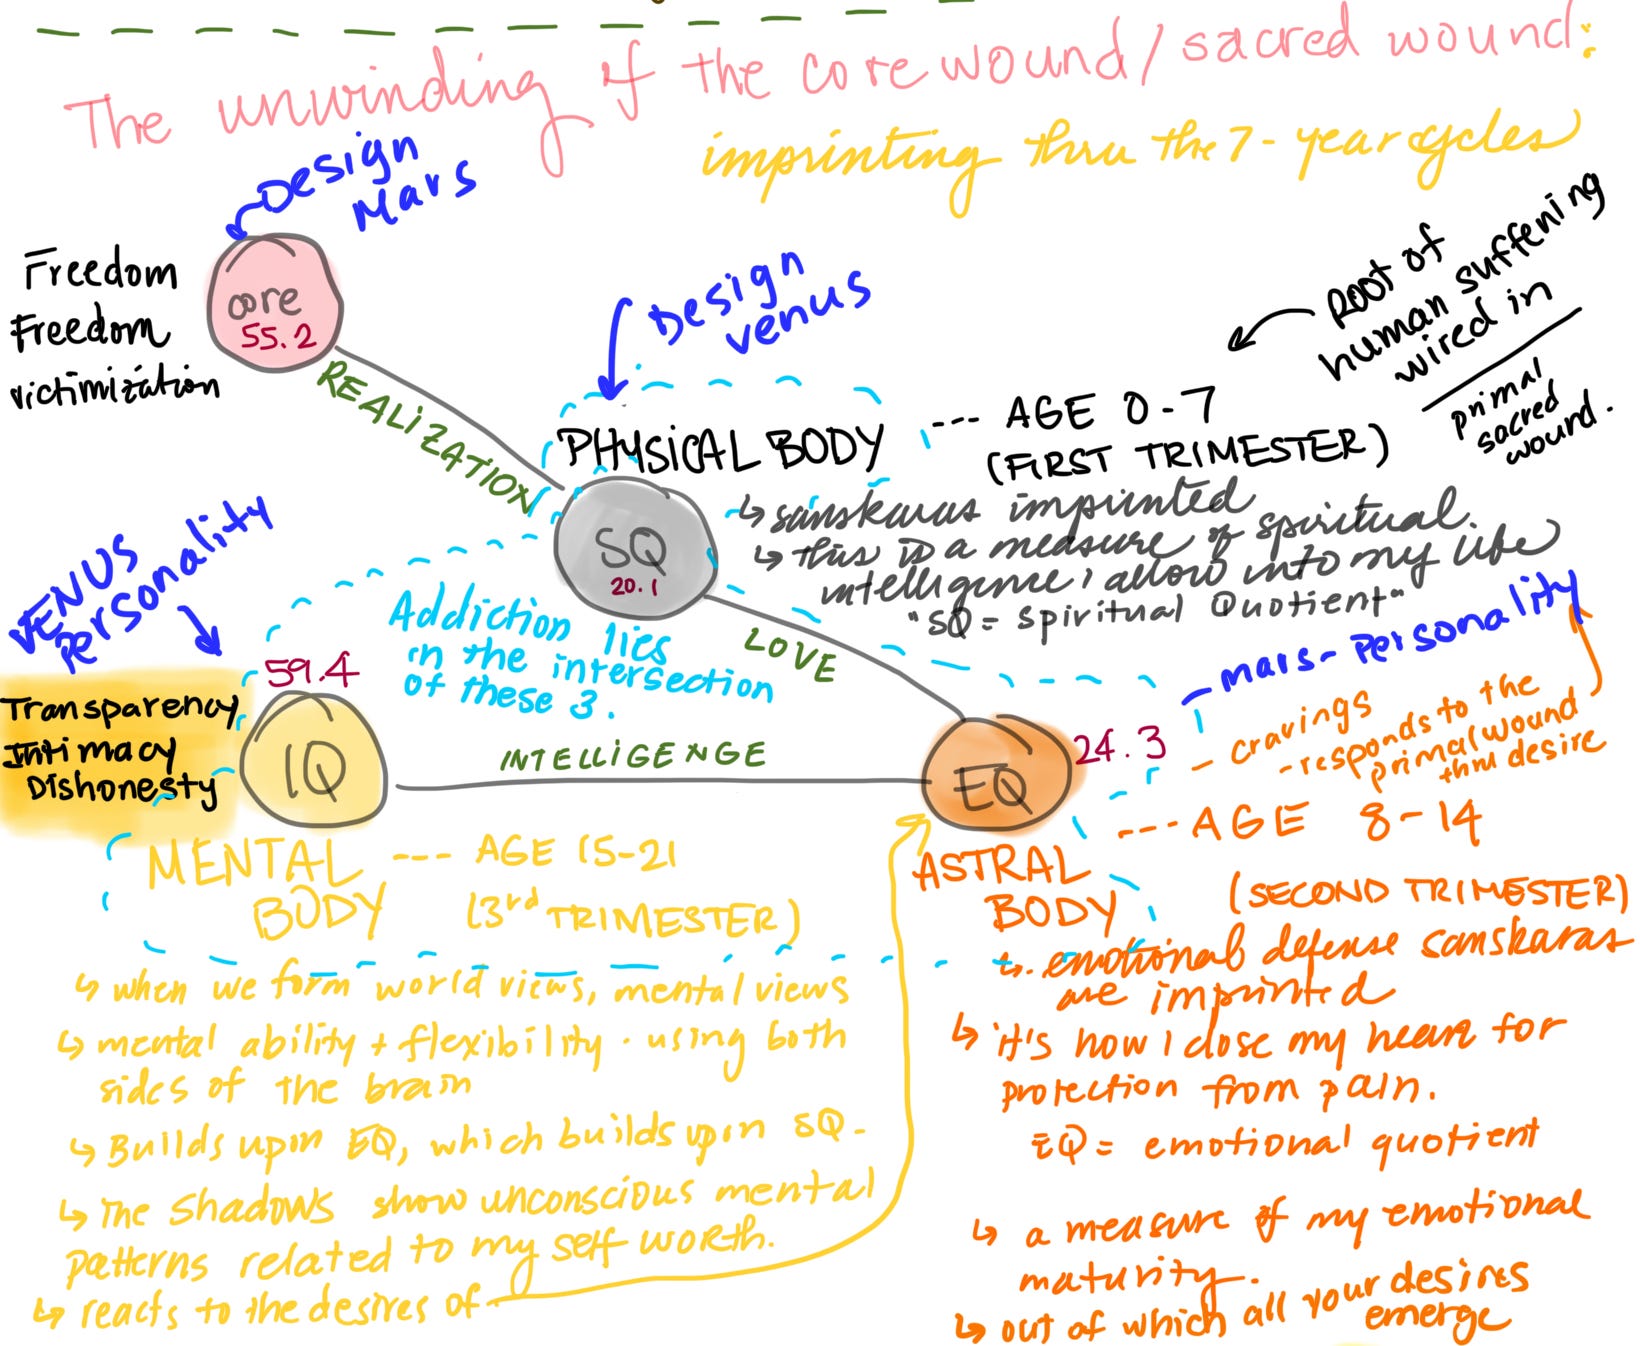 The unwinding of the core wound/sacred wound:
imprinting thru the 7-year cycles
Design
Mars
Freedom
Freedom
victimization
core
55.2
REALIZATION
Design
venus
Root of
human suffering
wired in
primal
sacred
wound.
PHYSICAL BODY
--- AGE 0-7
(FIRST TRIMESTER)
SQ
20.1
↳ sanskaras imprinted
↳ this is a measure of spiritual
intelligence I allow into my life
"SQ = Spiritual Quotient"
VENUS
Personality
59.4
Transparency
Intimacy
Dishonesty
IQ
Addiction lies
in the intersection
of these 3.
LOVE
INTELLIGENGE
Mars-Personality
EQ
24.3
- cravings
- responds to the
primal wound
thru desire
MENTAL
BODY
--- AGE 15-21
(3rd TRIMESTER)
↳ when we form world views, mental views
↳ mental ability + flexibility · using both
sides of the brain
↳ Builds upon EQ, which builds upon SQ.
↳ The Shadows show unconscious mental
patterns related to my self worth.
↳ reacts to the desires of
ASTRAL
BODY
--- AGE 8-14
(SECOND TRIMESTER)
↳ emotional defense sanskaras
are imprinted
↳ it's how I close my heart for
protection from pain.
EQ = emotional quotient
↳ a measure of my emotional
maturity.
↳ out of which all your desires
emerge